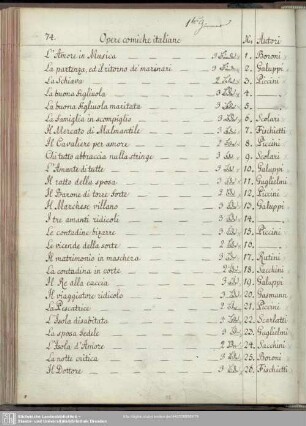 74. Opere comiche italiane N. Autori
L'Amore in Musica 3 1. Boroni
La partenza, ed il ritorno de' marinari 3 2. Galuppi
La Schiava 2 3. Piccini
La buona figliuola 3 4.
La buona figliuola maritata 3 5.
La famiglia in scompiglio 3 6. Scolari
Il Mercato di Malmantile 3 7. Fischietti
Il Cavaliere per amore 2 8. Piccini
Chi tutto abbraccia nulla stringe 3 9. Scolari
L'Amante di tutte 3 10. Galuppi
Il ratto della sposa 3 11. Guglielmi
Il Barone di torre forte 2 12. Piccini
Il Marchese villano 3 13. Galuppi
I tre amanti ridicoli 3 14.
Le contadine bizarre 3 15. Piccini
Le vicende della sorte 2 16.
Il matrimonio in maschera 3 17. Rutini
La contadina in corte 2 18. Sacchini
Il Re alla caccia 3 19. Galuppi
Il viaggiatore ridicolo 3 20. Gasmann
La Pescatrice 2 21. Piccini
L'Isola disabitata 3 22. Scarlatti
La sposa fedele 3 23. Guglielmi
L'Isola d'Amore 2 24. Sacchini
La notte critica 3 25. Boroni
Il Dottore 3 26. Fischietti